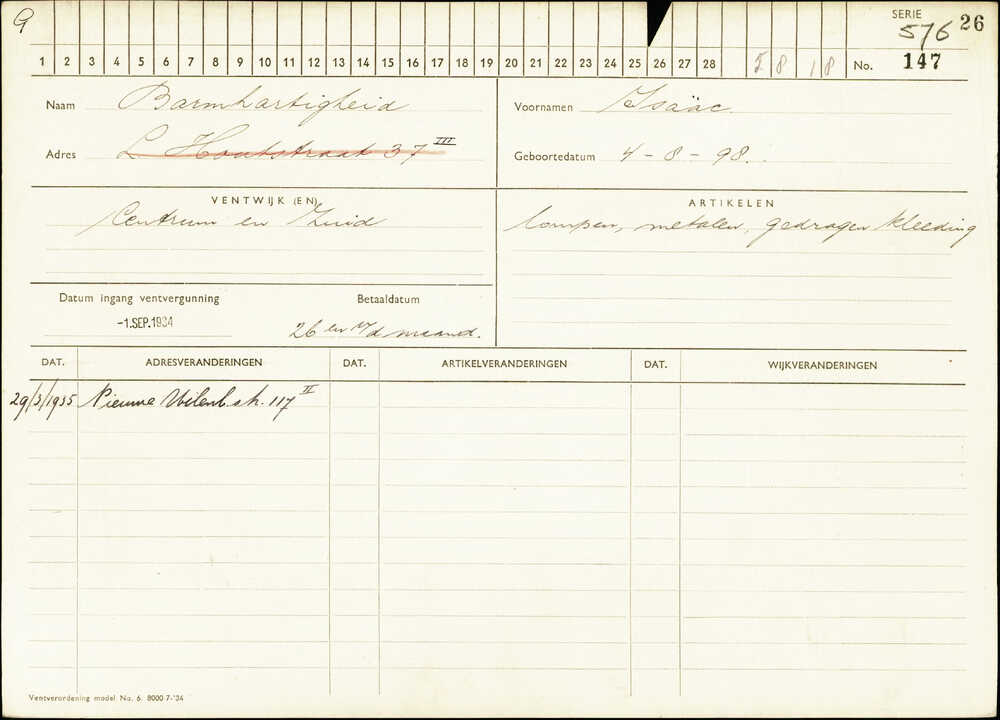 G
SERIE
576 26
1 2 3 4 5 6 7 8 9 10 11 12 13 14 15 16 17 18 19 20 21 22 23 24 25 26 27 28 5 8 18 No. 147
Naam Barmhartigheid
Voornamen Isaäc.
Adres L Houtstraat 37 III
Geboortedatum 4-8-98.
VENTWIJK (EN)
Centrum en Zuid
ARTIKELEN
lompen, metalen, gedragen kleeding
Datum ingang ventvergunning
-1.SEP.1934
Betaaldatum
26 en v/d maand.
DAT. ADRESVERANDERINGEN DAT. ARTIKELVERANDERINGEN DAT. WIJKVERANDERINGEN
29/3/1935 Nieuwe Uilenb.str. 117 II
Ventverordening model No. 6. 8000 7-'34